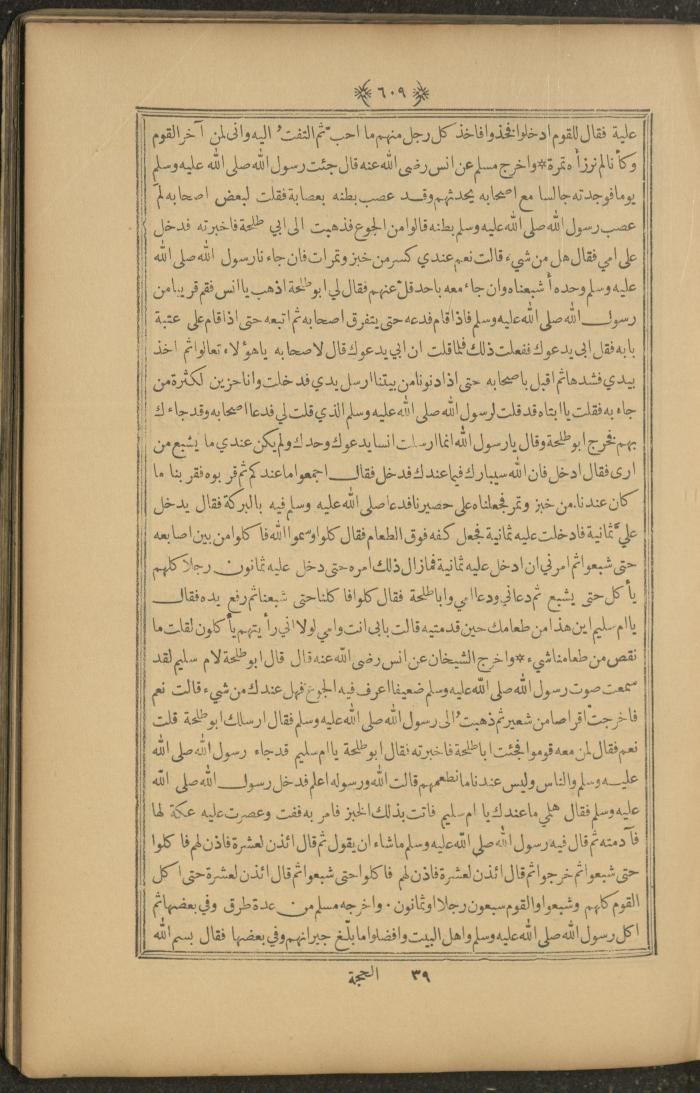 ٦٠٩
علية فقال للقوم ادخلوا فخذوا فاخذ كل رجل منهم ما احب ثم التفت اليه وانى لمن آخر القوم
وكأنا لم نرزأه تمرة * واخرج مسلم عن انس رضى الله عنه قال جئت رسول الله صلى الله عليه وسلم
يوما فوجدته جالسا مع اصحابه يحدثهم وقد عصب بطنه بعصابة فقلت لبعض اصحابه لم
عصب رسول الله صلى الله عليه وسلم بطنه قالوا من الجوع فذهبت الى ابي طلحة فاخبرته فدخل
على امي فقال هل من شيء قالت نعم عندي كسر من خبز وتمرات فان جاءنا رسول الله صلى الله
عليه وسلم وحده أشبعناه وان جاء معه باحد قل عنهم فقال لي ابو طلحة اذهب يا انس فقم قريبا من
رسول الله صلى الله عليه وسلم فاذا قام فدعه حتى يتفرق اصحابه ثم اتبعه حتى اذا قام على عتبة
بابه فقل ابى يدعوك ففعلت ذلك فلما قلت ان ابي يدعوك قال لاصحابه ياهؤلاء تعالوا ثم اخذ
بيدي فشدها ثم اقبل باصحابه حتى اذا دنونا من بيتنا ارسل يدي فدخلت وانا حزين لكثرة من
جاء به فقلت يا ابتاه قد قلت لرسول الله صلى الله عليه وسلم الذي قلت لي فدعا اصحابه وقد جاءك
بهم فخرج ابو طلحة وقال يارسول الله انما ارسلت انسا يدعوك وحدك ولم يكن عندي ما يشبع من
ارى فقال ادخل فان الله سيبارك فيما عندك فدخل فقال اجمعوا ما عندكم ثم قربوه فقربنا ما
كان عندنا من خبز وتمر فجعلناه على حصيرنا فدعا صلى الله عليه وسلم فيه بالبركة فقال يدخل
علي ثمانية فادخلت عليه ثمانية فجعل كفه فوق الطعام فقال كلوا وسموا الله فاكلوا من بين اصابعه
حتى شبعوا ثم امرني ان ادخل عليه ثمانية فمازال ذلك امره حتى دخل عليه ثمانون رجلا كلهم
يأكل حتى يشبع ثم دعاني ودعا امي وابا طلحة فقال كلوا فاكلنا حتى شبعنا ثم رفع يده فقال
يا ام سليم اين هذا من طعامك حين قدمتيه قالت بابى انت وامي لولا اني رأيتهم يأكلون لقلت ما
نقص من طعامنا شيء * واخرج الشيخان عن انس رضى الله عنه قال قال ابو طلحة لام سليم لقد
سمعت صوت رسول الله صلى الله عليه وسلم ضعيفا اعرف فيه الجوع فهل عندك من شيء قالت نعم
فاخرجت اقراصا من شعير ثم ذهبت الى رسول الله صلى الله عليه وسلم فقال ارسلك ابو طلحة قلت
نعم فقال لمن معه قوموا فجئت ابا طلحة فاخبرته فقال ابو طلحة يا ام سليم قد جاء رسول الله صلى الله
عليه وسلم والناس وليس عندنا ما نطعمهم قالت الله ورسوله اعلم فدخل رسول الله صلى الله
عليه وسلم فقال هلمي ما عندك يا ام سليم فاتت بذلك الخبز فامر به ففت وعصرت عليه عكة لها
فآدمته ثم قال فيه رسول الله صلى الله عليه وسلم ماشاء ان يقول ثم قال ائذن لعشرة فاذن لهم فاكلوا
حتى شبعوا ثم خرجوا ثم قال ائذن لعشرة فاذن لهم فاكلوا حتى شبعوا ثم قال ائذن لعشرة حتى اكل
القوم كلهم وشبعوا والقوم سبعون رجلا او ثمانون . واخرجه مسلم من عدة طرق وفي بعضها ثم
اكل رسول الله صلى الله عليه وسلم واهل البيت وافضلوا ما بلّغ جيرانهم وفي بعضها فقال بسم الله
٣٩ الحجة